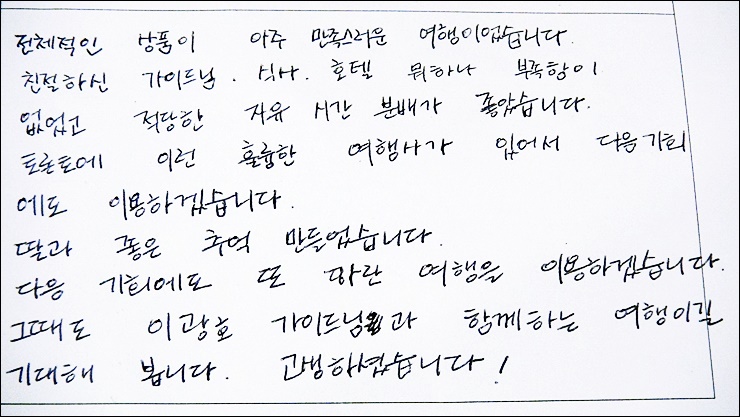 전체적인 상품이 아주 만족스러운 여행이었습니다.
친절하신 가이드님. 식사. 호텔 뭐하나 부족함이
없었고 적당한 자유 시간 분배가 좋았습니다.
토론토에 이런 훌륭한 여행사가 있어서 다음기회
에도 이용하겠습니다.
딸과 좋은 추억 만들었습니다.
다음 기회에도 또 파란 여행을 이용하겠습니다.
그때도 이광호 가이드님과 함께하는 여행이길
기대해 봅니다. 고생하셨습니다!